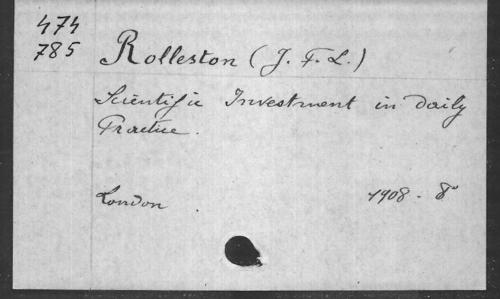 474
785
Rolleston (J. F. L.)
Scientific Investment in daily
Practice.
London 1908 - 8°